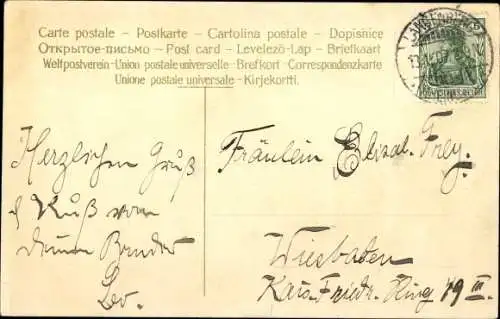 Carte postale – Postkarte – Cartolina postale – Dopisnice
Открытое-письмо – Post card – Levelező-Lap – Briefkaart
Weltpostverein-Union postale universelle-Brefkort-Correspondenzkarte
Unione postale universale - Kirjekortti.
Herzlichen Gruß
& Kuß vom
deinem Bruder
Leo.
Fräulein Elisab. Frey.
Wiesbaden
Kais. Friedr. Ring 49 III.